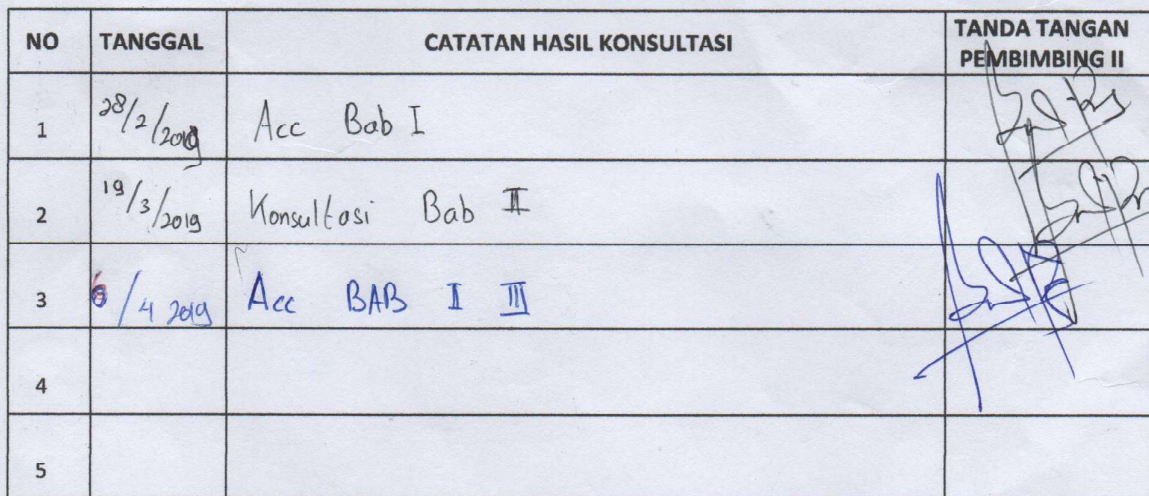 NO TANGGAL CATATAN HASIL KONSULTASI TANDA TANGAN
PEMBIMBING II
1 28/2/2019 Acc Bab I
2 19/3/2019 Konsultasi Bab II
3 /4 2019 Acc BAB II III
4
5